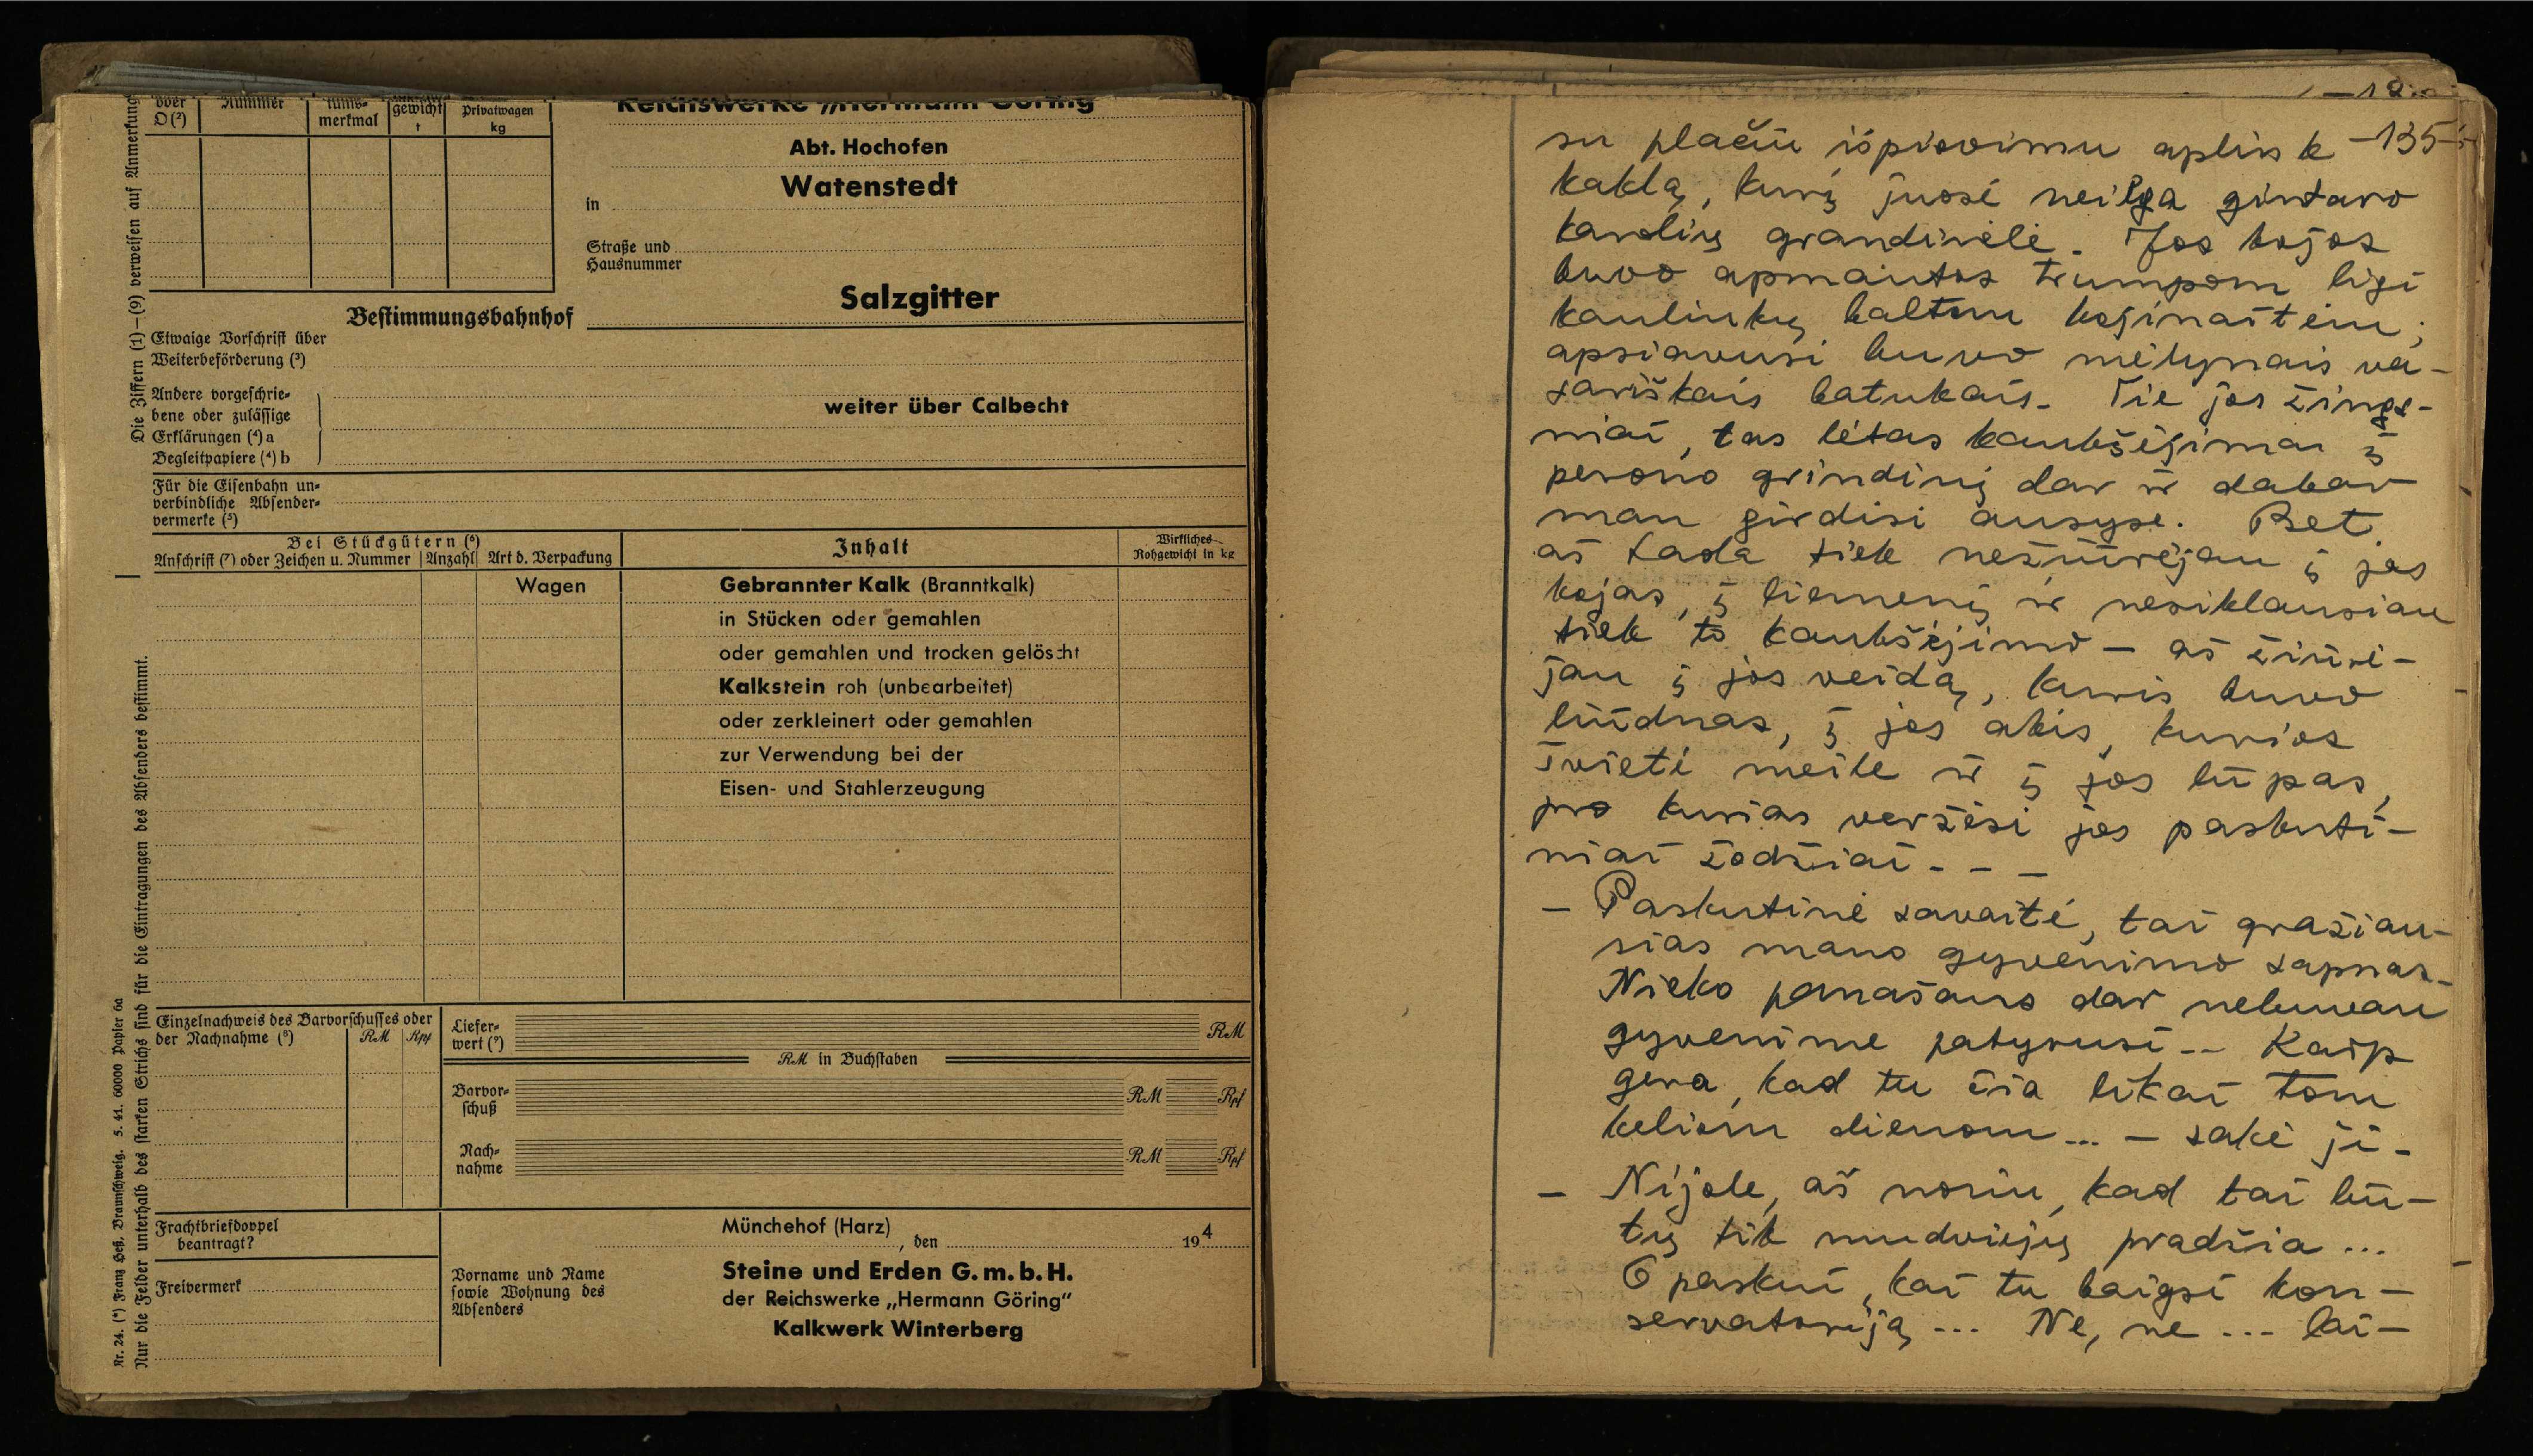 oder
D (²)
Nummer
tums-
merkmal
gewicht
t
Privatwagen
kg
Reichswerke „Hermann Göring
Abt. Hochofen
in
Watenstedt
Straße und
Hausnummer
Bestimmungsbahnhof
Salzgitter
Etwaige Vorschrift über
Weiterbeförderung (³)
Andere vorgeschrie-
bene oder zulässige
Erklärungen (⁴) a
Begleitpapiere (⁴) b
weiter über Calbecht
Für die Eisenbahn un-
verbindliche Absender-
vermerke (⁵)
Bei Stückgütern (⁶)
Anschrift (⁷) oder Zeichen u. Nummer
Anzahl
Art d. Verpackung
Inhalt
Wirkliches
Rohgewicht in kg
Wagen
Gebrannter Kalk (Branntkalk)
in Stücken oder gemahlen
oder gemahlen und trocken gelöscht
Kalkstein roh (unbearbeitet)
oder zerkleinert oder gemahlen
zur Verwendung bei der
Eisen- und Stahlerzeugung
Einzelnachweis des Barvorschusses oder
der Nachnahme (⁸)
RM
Rpf
Liefer-
wert (⁹)
RM
RM in Buchstaben
Barvor-
schuß
RM
Rpf
Nach-
nahme
RM
Rpf
Frachtbriefdoppel
beantragt?
Freivermerk
Münchehof (Harz)
, den
194
Vorname und Name
sowie Wohnung des
Absenders
Steine und Erden G.m.b.H.
der Reichswerke „Hermann Göring“
Kalkwerk Winterberg
Die Ziffern (1)—(9) verweisen auf Anmerkung
Nur die Felder unterhalb des starken Strichs sind für die Eintragungen des Absenders bestimmt.
Nr. 24. (*) Franz Heß, Braunschweig. 5. 41. 60000 Papier 6a
-135-
su plačiu išpiovimu aplink
kaklą, kurį juosė neilga gintaro
karolių grandinėlė. Jos kojos
buvo apmautos trumpom ligi
kauliukų baltom kojinaitėm;
apsiavusi buvo mėlynais va-
sariškais batukais. Tie jos žings-
niai, tas lėtas kaukšėjimas į
perono grindinį dar ir dabar
man girdisi ausyse. Bet
aš tada tiek nežiūrėjau į jos
kojas, į liemenį ir nesiklausiau
tiek to kaukšėjimo — aš žiūrė-
jau į jos veidą, kuris buvo
liūdnas, į jos akis, kurios
švietė meile ir į jos lūpas,
pro kurias veržėsi jos paskuti-
niai žodžiai - - -
— Paskutinė savaitė, tai gražiau-
sias mano gyvenimo sapnas.
Nieko panašaus dar nebuvau
gyvenime patyrusi -- Kaip
gera, kad tu čia likai tom
keliom dienom... — sakė ji.
— Nijole, aš noriu, kad tai bū-
tų tik mudviejų pradžia ...
O paskui, kai tu baigsi kon-
servatoriją ... Ne, ne ... lai-